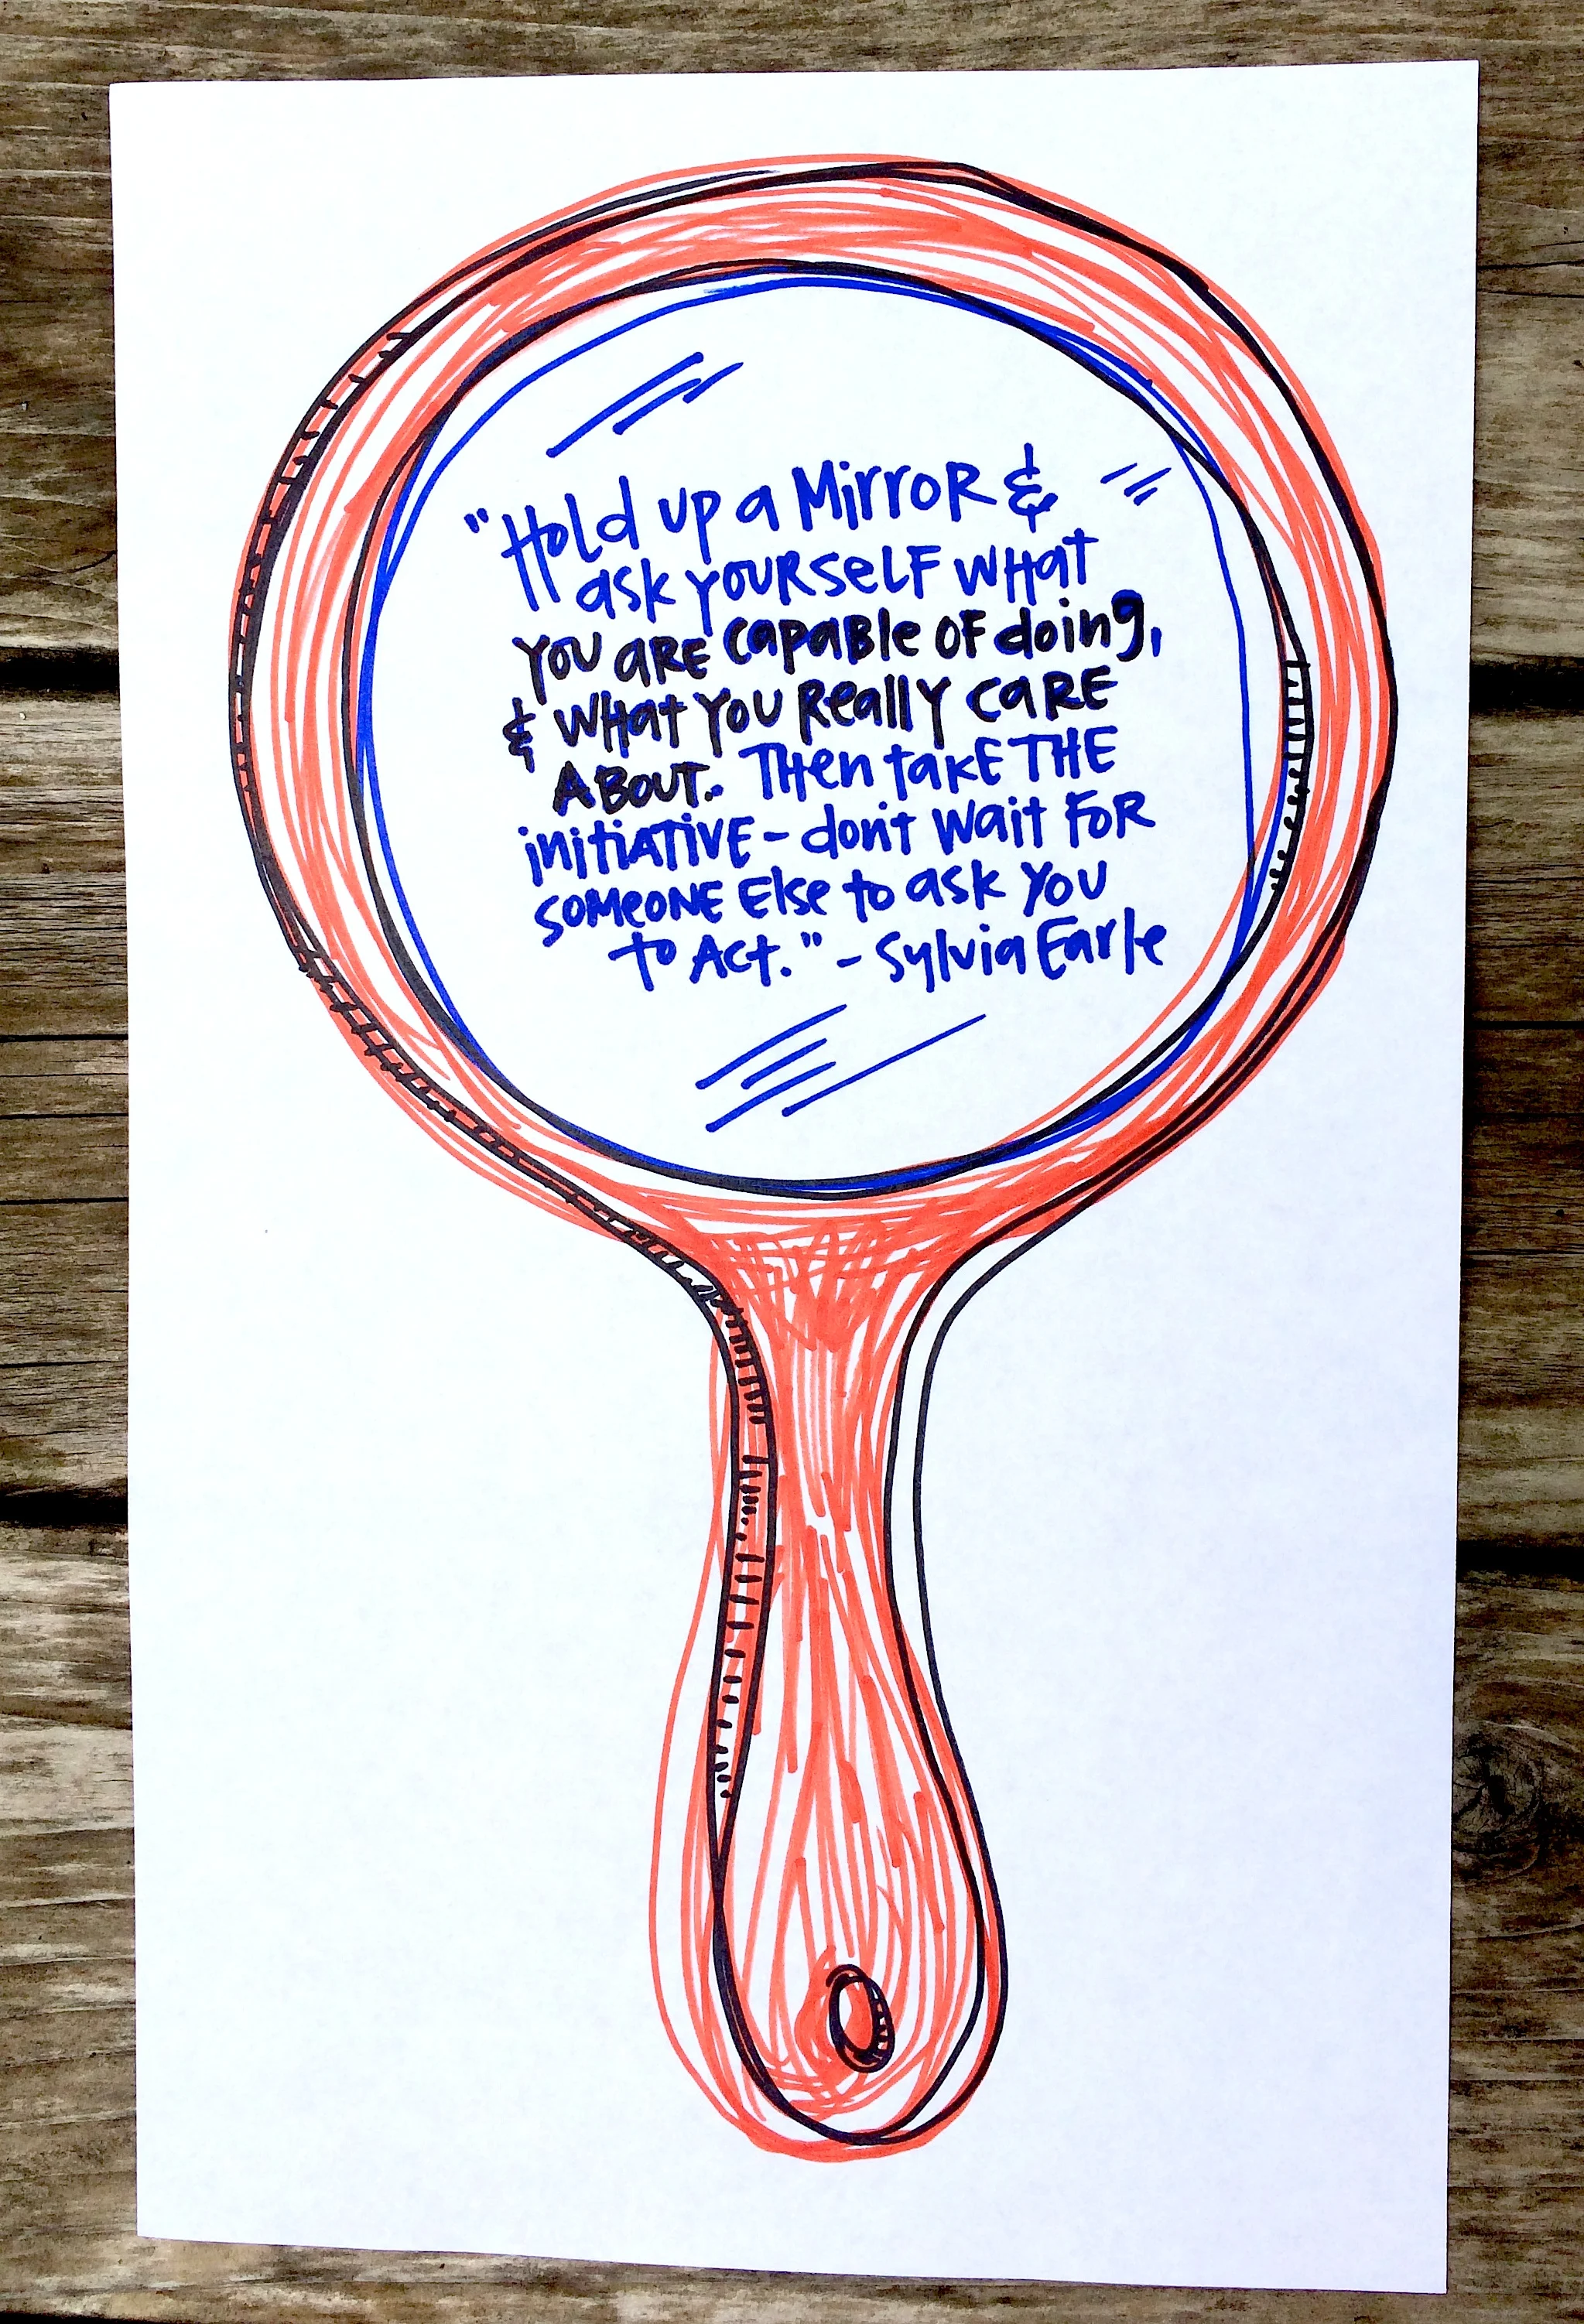 "Hold up a MirroR &
ask yourself what
you are capable of doing,
& what you really care
about. Then take the
initiative - don't wait for
someone else to ask you
to Act." - Sylvia Earle